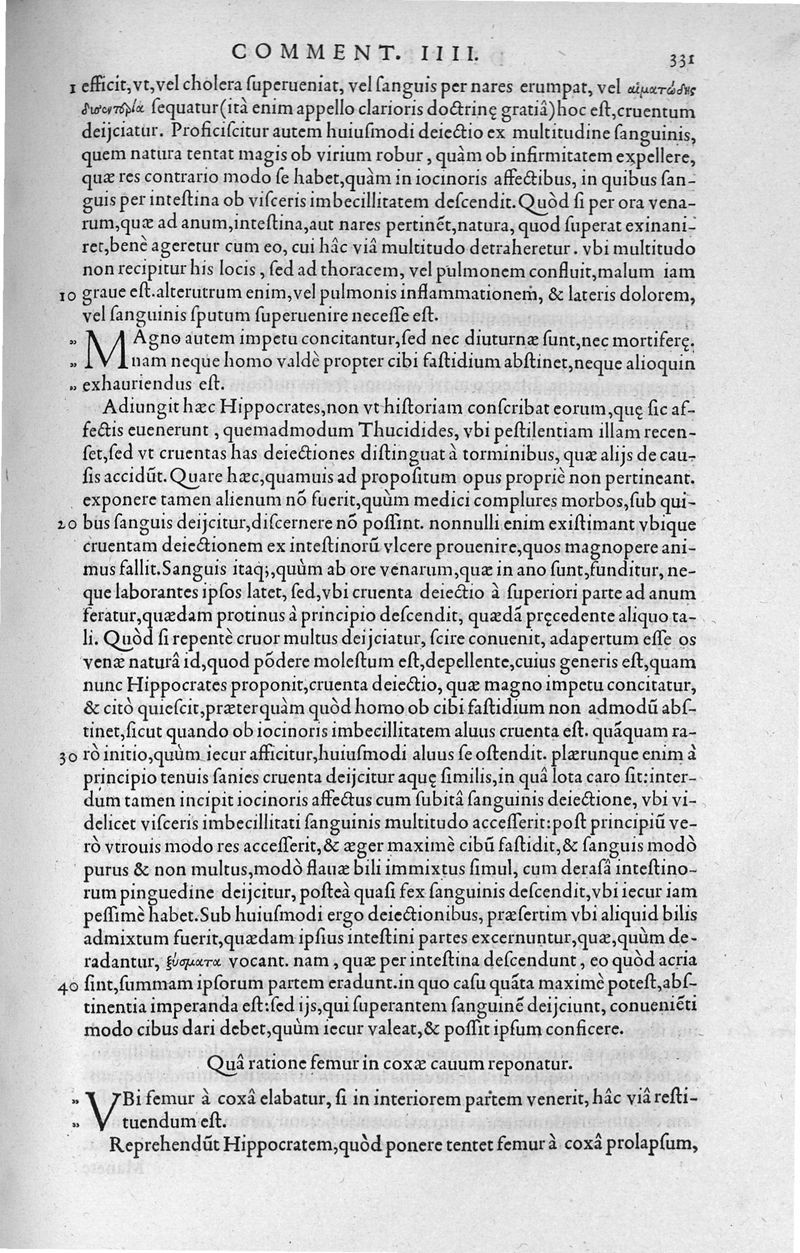 COMMENT. IIII. 331
1 efficit,vt,vel cholera ſuperueniat, vel ſanguis per nares erumpat, vel αἱματώδης
ſequatur(ità enim appello clarioris doctrinę gratiâ)hoc eſt,cruentum
deijciatur. Proficiſcitur autem huiuſmodi deiectio ex multitudine ſanguinis,
quem natura tentat magis ob virium robur, quàm ob infirmitatem expellere,
quæ res contrario modo ſe habet,quàm in iocinoris affectibus, in quibus ſan-
guis per inteſtina ob viſceris imbecillitatem deſcendit. Quòd ſi per ora vena-
rum,quæ ad anum,inteſtina,aut nares pertinẽt,natura, quod ſuperat exinani-
ret,benè ageretur cum eo, cui hâc viâ multitudo detraheretur. vbi multitudo
non recipitur his locis, ſed ad thoracem, vel pulmonem confluit,malum iam
10 graue eſt.alterutrum enim,vel pulmonis inflammationem, & lateris dolorem,
vel ſanguinis ſputum ſuperuenire neceſſe eſt.
„ MAgno autem impetu concitantur,ſed nec diuturnæ ſunt,nec mortiferę.
„ nam neque homo valdè propter cibi faſtidium abſtinet,neque alioquin
„ exhauriendus eſt.
Adiungit hæc Hippocrates,non vt hiſtoriam conſcribat eorum,quę ſic af-
fectis euenerunt, quemadmodum Thucidides, vbi peſtilentiam illam recen-
ſet,ſed vt cruentas has deiectiones diſtinguat à torminibus, quæ alijs de cau-
ſis accidũt. Quare hæc,quamuis ad propoſitum opus propriè non pertineant.
exponere tamen alienum nõ fuerit,quùm medici complures morbos,ſub qui-
20 bus ſanguis deijcitur,diſcernere nõ poſſint. nonnulli enim exiſtimant vbique
cruentam deiectionem ex inteſtinorũ vlcere prouenire,quos magnopere ani-
mus fallit.Sanguis itaq;,quùm ab ore venarum,quæ in ano ſunt,funditur, ne-
que laborantes ipſos latet, ſed,vbi cruenta deiectio à ſuperiori parte ad anum
feratur,quædam protinus à principio deſcendit, quædã pręcedente aliquo ta-
li. Quòd ſi repentè cruor multus deijciatur, ſcire conuenit, adapertum eſſe os
venæ naturâ id,quod põdere moleſtum eſt,depellente,cuius generis eſt,quam
nunc Hippocrates proponit,cruenta deiectio, quæ magno impetu concitatur,
& citò quieſcit,præterquàm quòd homo ob cibi faſtidium non admodũ abſ-
tinet,ſicut quando ob iocinoris imbecillitatem aluus cruenta eſt. quãquam ra-
30 rò initio,quùm iecur afficitur,huiuſmodi aluus ſe oſtendit. plærunque enim à
principio tenuis ſanies cruenta deijcitur aquę ſimilis,in quâ lota caro ſit:inter-
dum tamen incipit iocinoris affectus cum ſubitâ ſanguinis deiectione, vbi vi-
delicet viſceris imbecillitati ſanguinis multitudo acceſſerit:poſt principiũ ve-
rò vtrouis modo res acceſſerit,& æger maximè cibũ faſtidit,& ſanguis modò
purus & non multus,modò flauæ bili immixtus ſimul, cum deraſâ inteſtino-
rum pinguedine deijcitur, poſteà quaſi fex ſanguinis deſcendit,vbi iecur iam
peſſimè habet.Sub huiuſmodi ergo deiectionibus, præſertim vbi aliquid bilis
admixtum fuerit,quædam ipſius inteſtini partes excernuntur,quæ,quùm de-
radantur, ξύσματα vocant. nam, quæ per inteſtina deſcendunt, eo quòd acria
40 ſint,ſummam ipſorum partem eradunt.in quo caſu quãta maximè poteſt,abſ-
tinentia imperanda eſt:ſed ijs,qui ſuperantem ſanguinẽ deijciunt, conueniẽti
modo cibus dari debet,quùm iecur valeat,& poſſit ipſum conficere.
Quâ ratione femur in coxæ cauum reponatur.
„ VBi femur à coxâ elabatur, ſi in interiorem partem venerit, hâc viâ reſti-
„ tuendum eſt.
Reprehendũt Hippocratem,quòd ponere tentet femur à coxâ prolapſum,